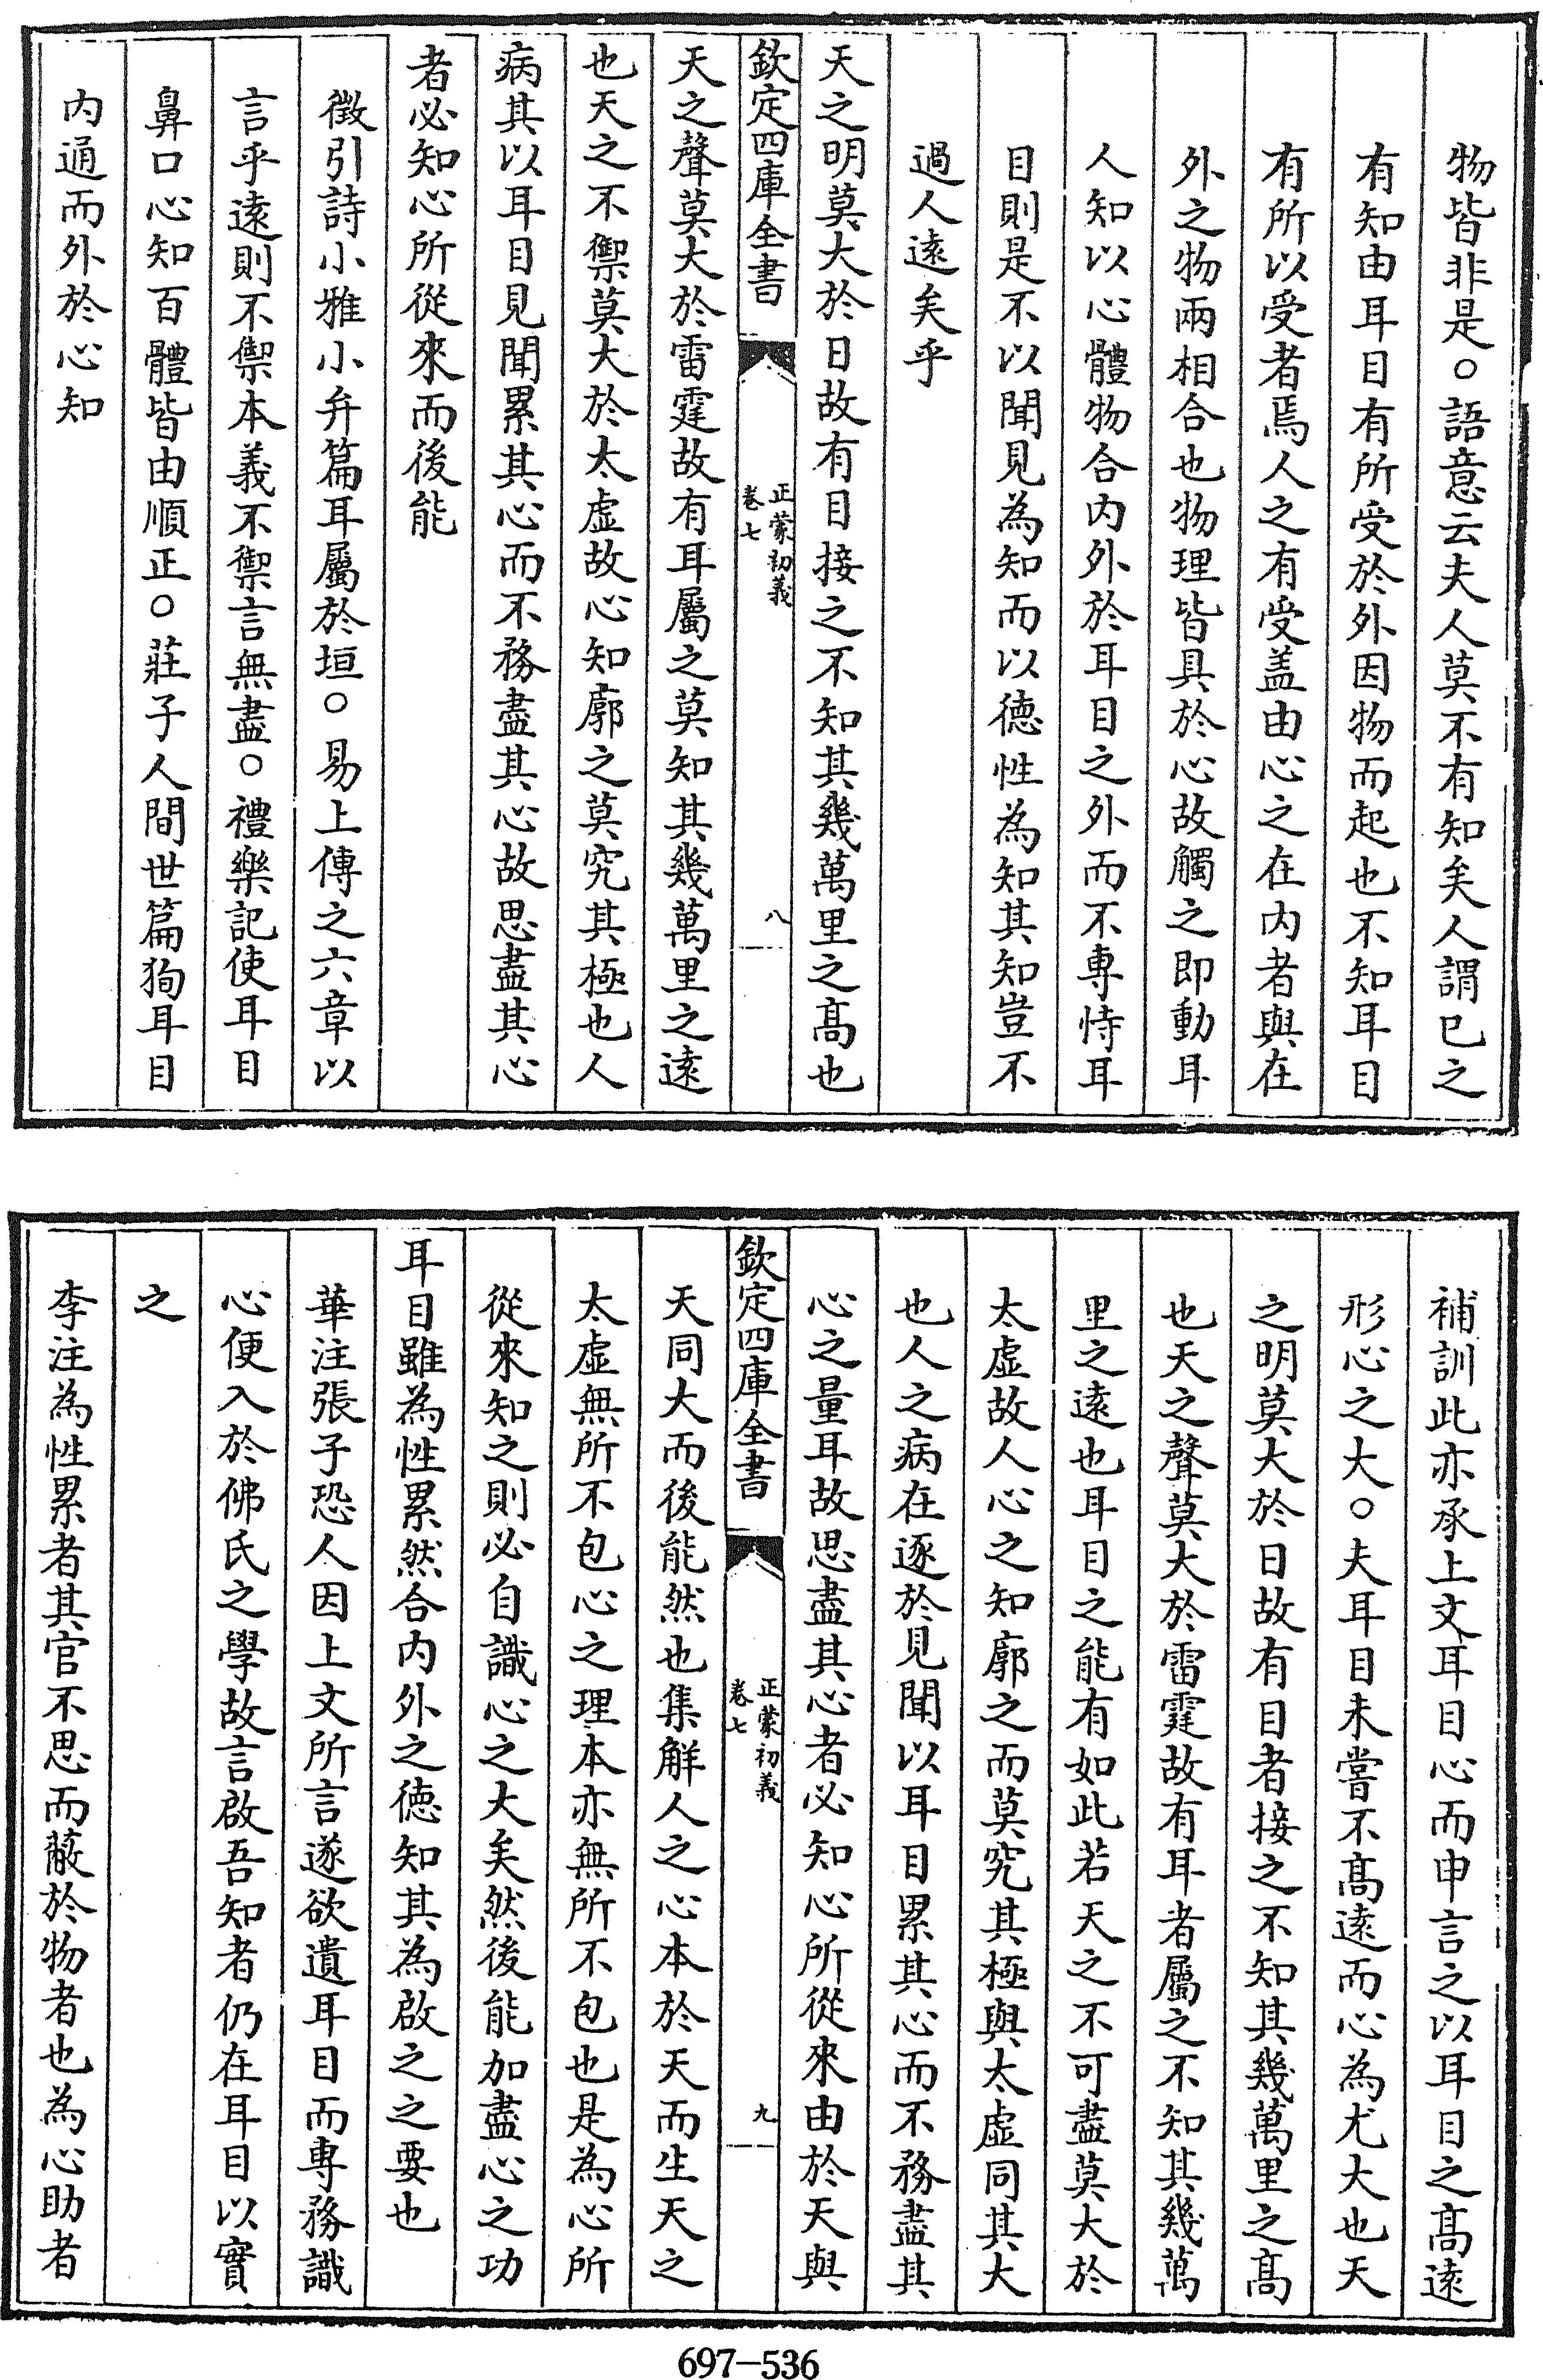 物皆非是○語意云夫人莫不有知矣人謂已之
有知由耳目有所受於外因物而起也不知耳目
有所以受者焉人之有受盖由心之在内者與在
外之物兩相合也物理皆具於心故觸之即動耳
人知以心體物合内外於耳目之外而不專恃耳
目則是不以聞見為知而以德性為知其知豈不
過人遠矣乎
天之明莫大於日故有目接之不知其幾萬里之髙也
欽定四庫全書
正蒙初義
卷七
八
天之聲莫大於雷霆故有耳屬之莫知其幾萬里之遠
也天之不禦莫大於太虚故心知廓之莫究其極也人
病其以耳目見聞累其心而不務盡其心故思盡其心
者必知心所從來而後能
徵引詩小雅小弁篇耳屬於垣○易上傳之六章以
言乎遠則不禦本義不禦言無盡○禮樂記使耳目
鼻口心知百體皆由順正○莊子人間世篇狥耳目
内通而外於心知
補訓此亦承上文耳目心而申言之以耳目之髙遠
形心之大○夫耳目未嘗不髙遠而心為尤大也天
之明莫大於日故有目者接之不知其幾萬里之髙
也天之聲莫大於雷霆故有耳者屬之不知其幾萬
里之遠也耳目之能有如此若天之不可盡莫大於
太虚故人心之知廓之而莫究其極與太虚同其大
也人之病在逐於見聞以耳目累其心而不務盡其
心之量耳故思盡其心者必知心所從來由於天與
欽定四庫全書
正蒙初義
卷七
九
天同大而後能然也集解人之心本於天而生天之
太虚無所不包心之理本亦無所不包也是為心所
從來知之則必自識心之大矣然後能加盡心之功
耳目雖為性累然合内外之德知其為啟之之要也
華注張子恐人因上文所言遂欲遺耳目而專務識
心便入於佛氏之學故言啟吾知者仍在耳目以實
之
李注為性累者其官不思而蔽於物者也為心助者
697-536